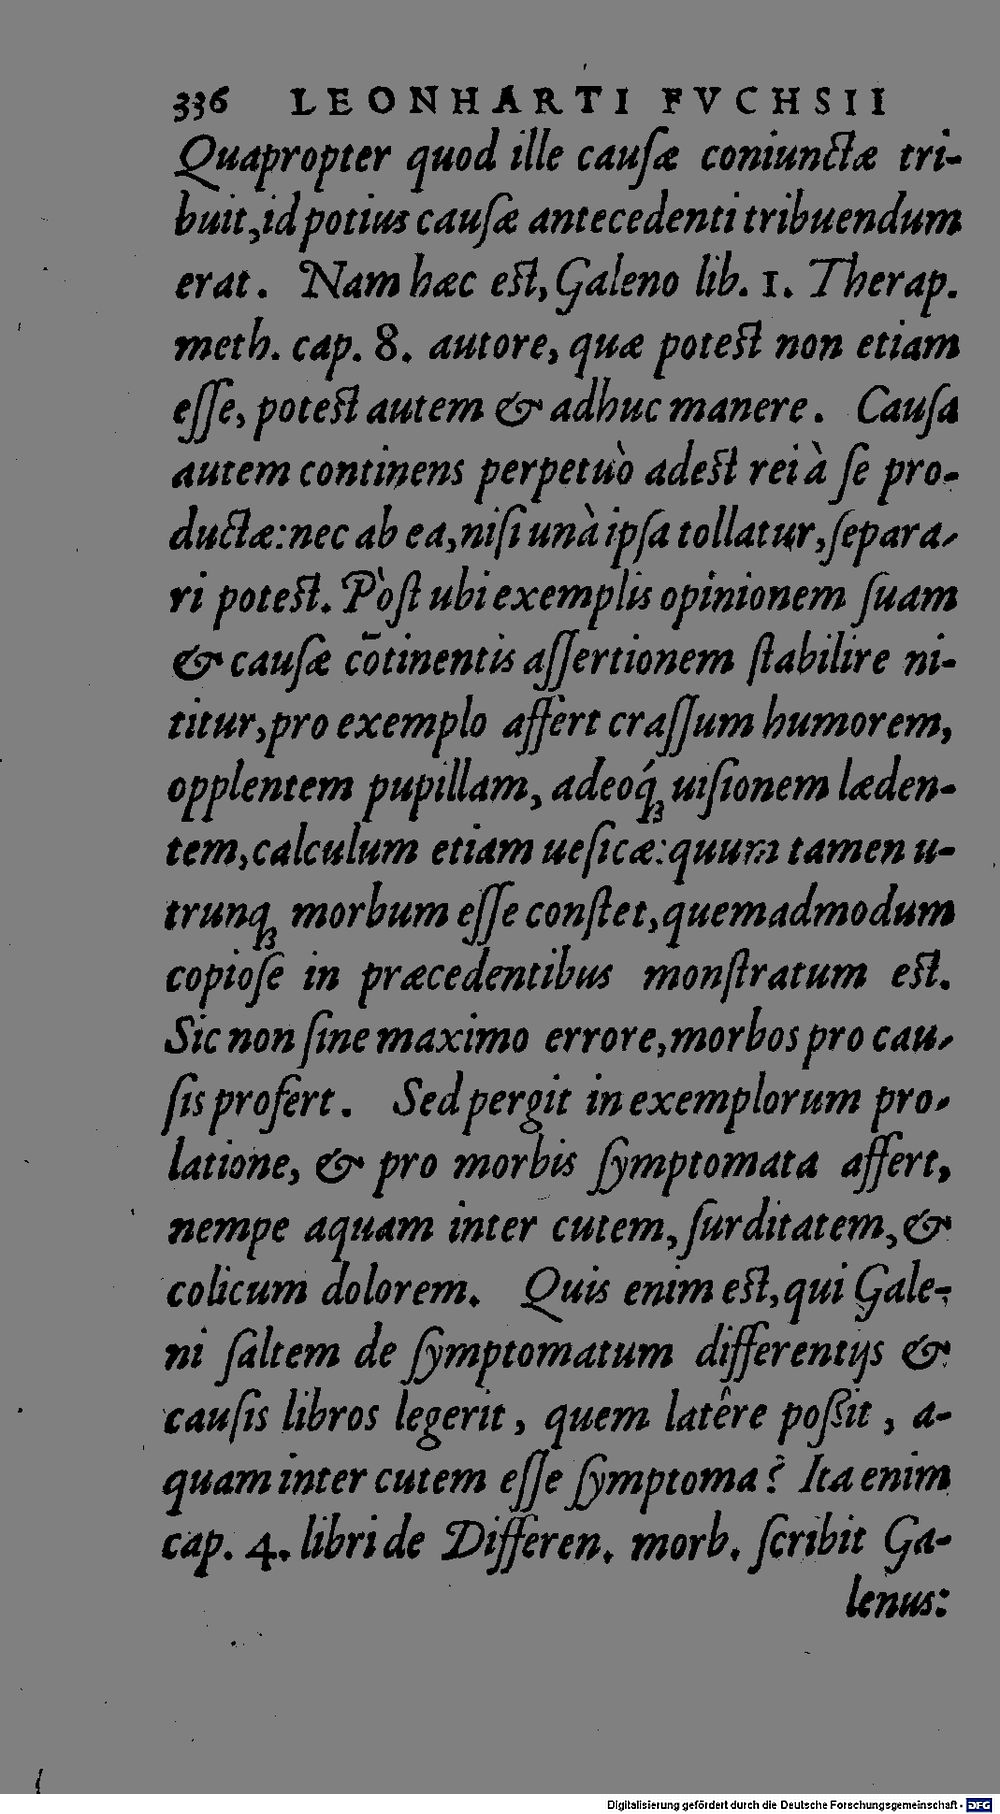 336 LEONHARTI FVCHSII
Quapropter quod ille cauſæ coniunctæ tri-
buit, id potius cauſæ antecedenti tribuendum
erat. Nam hæc est, Galeno lib. 1. Therap.
meth. cap. 8. autore, quæ potest non etiam
eſſe, potest autem & adhuc manere. Cauſa
autem continens perpetuò adest rei à ſe pro-
ductæ: nec ab ea, niſi unà ipſa tollatur, ſepara-
ri potest. Pòſt ubi exemplis opinionem ſuam
& cauſæ cõtinentis aſſertionem ſtabilire ni-
titur, pro exemplo affert craſſum humorem,
opplentem pupillam, adeóq́ꝫ uiſionem læden-
tem, calculum etiam ueſicæ: quum tamen u-
trunqꝫ morbum eſſe conſtet, quemadmodum
copioſe in præcedentibus monſtratum est.
Sic non ſine maximo errore, morbos pro cau-
ſis profert. Sed pergit in exemplorum pro-
latione, & pro morbis ſymptomata affert,
nempe aquam inter cutem, ſurditatem, &
colicum dolorem. Quis enim est, qui Gale-
ni ſaltem de ſymptomatum differentijs &
cauſis libros legerit, quem latêre poßit, a-
quam inter cutem eſſe ſymptoma? Ita enim
cap. 4. libri de Differen. morb. ſcribit Ga-
lenus:
Digitalisierung gefördert durch die Deutsche Forschungsgemeinschaft - DFG